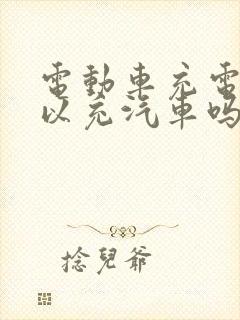 電動車充電
以充汽車吗
捻兒爺